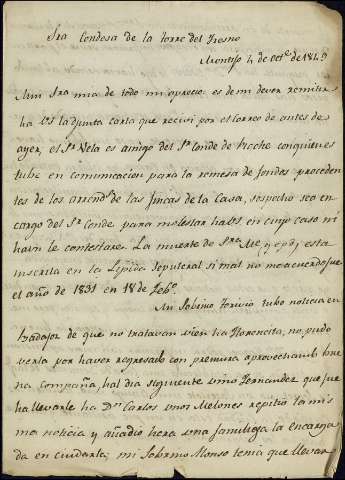 Sra Condesa de la torre del Fresno
Montijo 4 de octe. de 1849
Mui Sra mia de todo mi aprecio: es de mi dever remitir
ha Vs la adjunta carta que recivi por el correo de antes de
ayer, el Sr. Vela es amigo del Sr. Conde de con quienes
tube en comunicacion para la remesa de fondos proceden
tes de los arrendos. de las fincas de la Casa, sospecho sea en
cargo del Sr. Conde para molestar ha Vs en cuyo caso ni
haun le contestare. La muerte de esta
inscrita en la Lapida sepulcral si mal no me acuerdo fue
el año de 1831 en 18 de Febo.
Mi Sobrino tubo noticia en
Badajoz de que no tratavan vien ha Florencita, no pudo
verla por haver regresado con premura aprovechando bue
na compaña, hal dia siguiente vino Fernandez que fue
ha llevarle ha Dn. Carlos unos Melones repitio la mis
ma noticia y añadio hera una la encarga
da en cuidarla; mi sobrino Alonso tenia que llevar